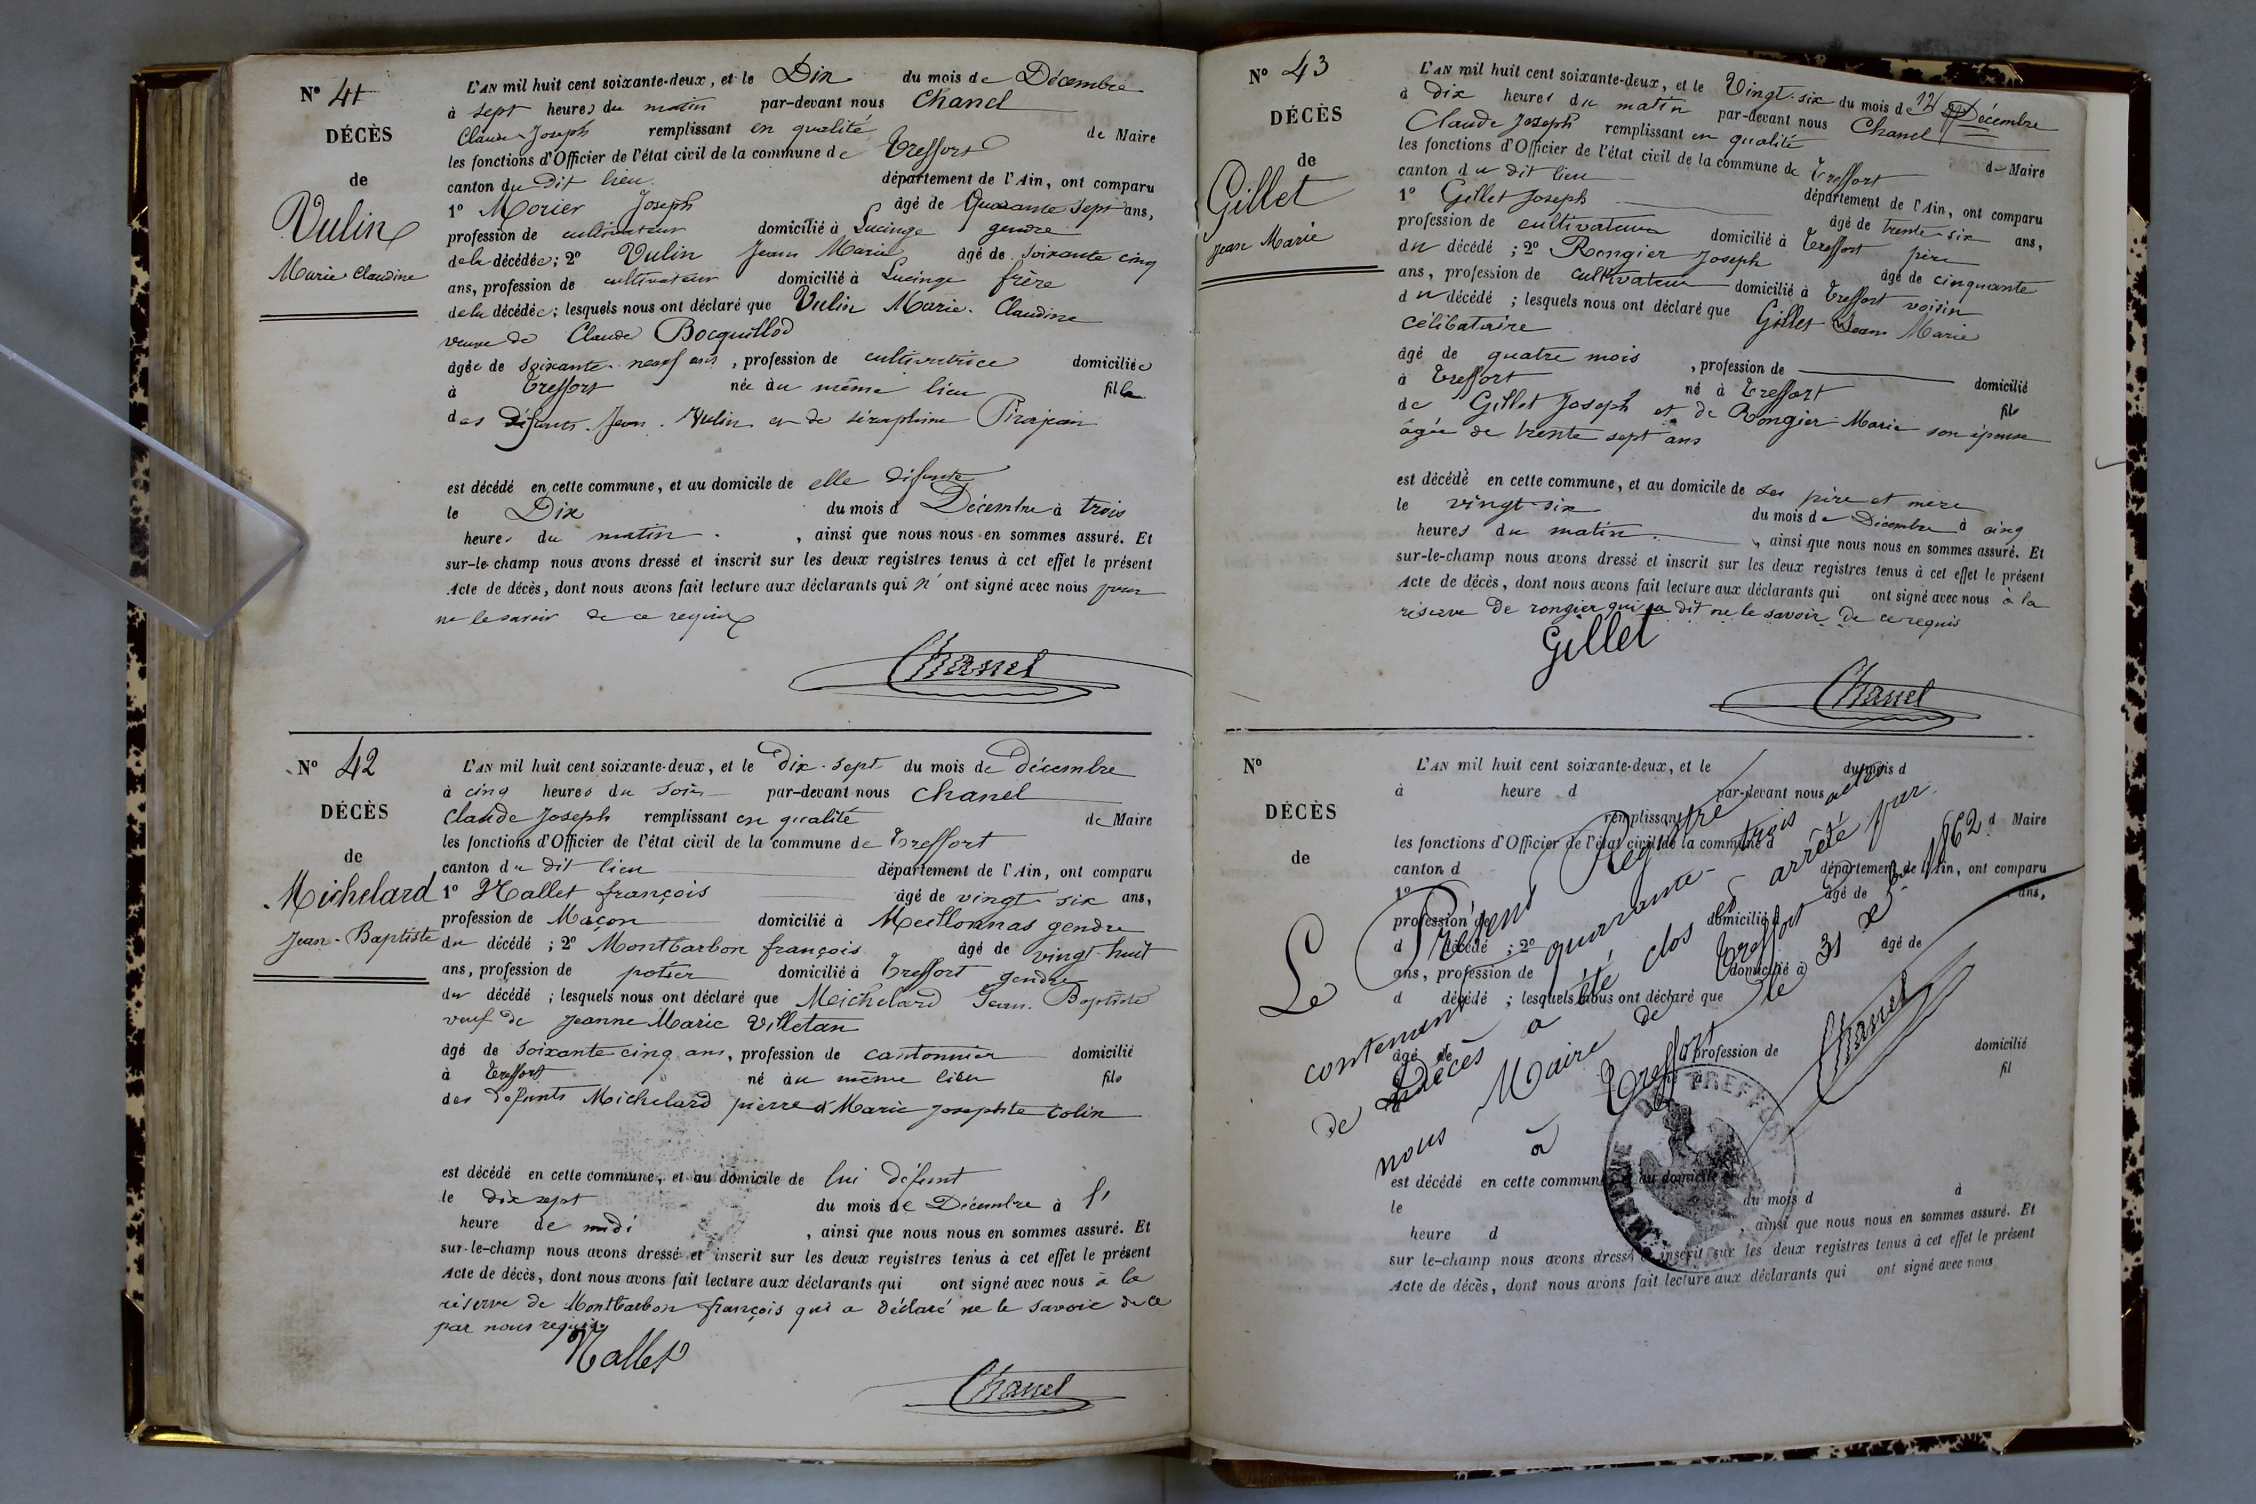 N° 41
DÉCÈS
de
Vulin
Marie Claudine
L'AN mil huit cent soixante-deux, et le Dix du mois de Décembre
à sept heures du matin par-devant nous Chanel
Claude Joseph remplissant en qualité de Maire
les fonctions d'Officier de l'état civil de la commune de Treffort
canton du dit lieu département de l'Ain, ont comparu
1° Morier Joseph âgé de Quarante sept ans,
profession de cultivateur domicilié à Lucinge gendre
de la décédée; 2° Vulin Jean Marie âgé de soixante cinq
ans, profession de cultivateur domicilié à Lucinge frère
de la décédée; lesquels nous ont déclaré que Vulin Marie Claudine
veuve de Claude Bocquillod
âgée de soixante-neuf ans, profession de cultivatrice domiciliée
à Treffort née au même lieu fille
des défunts Jean Vulin et de séraphine Pirajean
est décédé en cette commune, et au domicile de elle défunte
le Dix du mois d Décembre à trois
heures du matin, ainsi que nous nous en sommes assuré. Et
sur-le-champ nous avons dressé et inscrit sur les deux registres tenus à cet effet le présent
Acte de décès, dont nous avons fait lecture aux déclarants qui n'ont signé avec nous pour
ne le savoir de ce requis
Chanel
N° 42
DÉCÈS
de
Michelard
Jean-Baptiste
L'AN mil huit cent soixante-deux, et le dix-sept du mois de décembre
à cinq heures du soir par-devant nous Chanel
Claude Joseph remplissant en qualité de Maire
les fonctions d'Officier de l'état civil de la commune de Treffort
canton du dit lieu département de l'Ain, ont comparu
1° Nallet françois âgé de vingt six ans,
profession de Maçon domicilié à Meillonnas gendre
du décédé; 2° Montbarbon françois âgé de vingt-huit
ans, profession de potier domicilié à Treffort gendre
du décédé; lesquels nous ont déclaré que Meichelard Jean Baptiste
veuf de Jeanne Marie Villetan
âgé de soixante cinq ans, profession de cantonnier domicilié
à Treffort né au même lieu fils
des défunts Michelard pierre et Marie josephte Colin
est décédé en cette commune, et au domicile de lui défunt
le dix sept du mois de Décembre à l'
heure de midi, ainsi que nous nous en sommes assuré. Et
sur-le-champ nous avons dressé et inscrit sur les deux registres tenus à cet effet le présent
Acte de décès, dont nous avons fait lecture aux déclarants qui ont signé avec nous à la
réserve de Montbarbon françois qui a déclaré ne le savoir de ce
par nous requis
Nallet
Chanel
N° 43
DÉCÈS
de
Gillet
Jean Marie
L'AN mil huit cent soixante-deux, et le Vingt-six du mois de Décembre
à dix heures du matin par-devant nous Chanel
Claude Joseph remplissant en qualité de Maire
les fonctions d'Officier de l'état civil de la commune de Treffort
canton du dit lieu département de l'Ain, ont comparu
1° Gillet Joseph âgé de trente-six ans,
profession de cultivateur domicilié à Treffort père
du décédé; 2° Rongier Joseph âgé de cinquante
ans, profession de cultivateur domicilié à Treffort voisin
du décédé; lesquels nous ont déclaré que Gillet Jean Marie
célibataire
âgé de quatre mois, profession de domicilié
à Treffort né à Treffort fils
de Gillet Joseph et de Rongier Marie son épouse
âgée de trente sept ans
est décédé en cette commune, et au domicile de ses père et mère
le vingt-six du mois de Décembre à cinq
heures du matin, ainsi que nous nous en sommes assuré. Et
sur-le-champ nous avons dressé et inscrit sur les deux registres tenus à cet effet le présent
Acte de décès, dont nous avons fait lecture aux déclarants qui ont signé avec nous à la
réserve de rongier qui a dit ne le savoir de ce requis
Gillet
Chanel
N°
DÉCÈS
de
L'AN mil huit cent soixante-deux, et le du mois d
à heure d par-devant nous
remplissant d Maire
les fonctions d'Officier de l'état civil de la commune d
canton d département de l'Ain, ont comparu
1° âgé de ans,
profession de domicilié à
d décédé; 2° âgé de
ans, profession de domicilié à
d décédé; lesquels nous ont déclaré que
âgé de profession de domicilié
à né fil
est décédé en cette commune, et au domicile
le du mois d à
heure d, ainsi que nous nous en sommes assuré. Et
sur le-champ nous avons dressé et inscrit sur les deux registres tenus à cet effet le présent
Acte de décès, dont nous avons fait lecture aux déclarants qui ont signé avec nous
Le Présent Registre
contenant quarante-trois actes
de décès a été clos et arrêté par
nous Maire de Treffort
à Treffort le 31 Xbre 1862
Chanel
MAIRIE DE TREFFORT